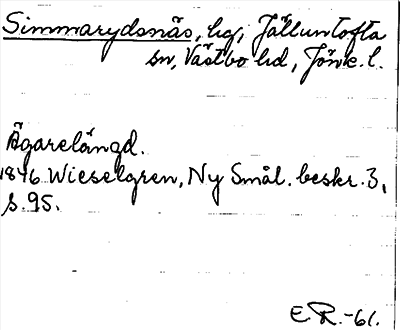 Simmarydsnäs, hg, Jälluntofta
sn, Västbo hd, Jönk. l.
Ägarelängd.
1846 Wieselgren, Ny Smål. beskr. 3,
s. 95.
E. R. -61.